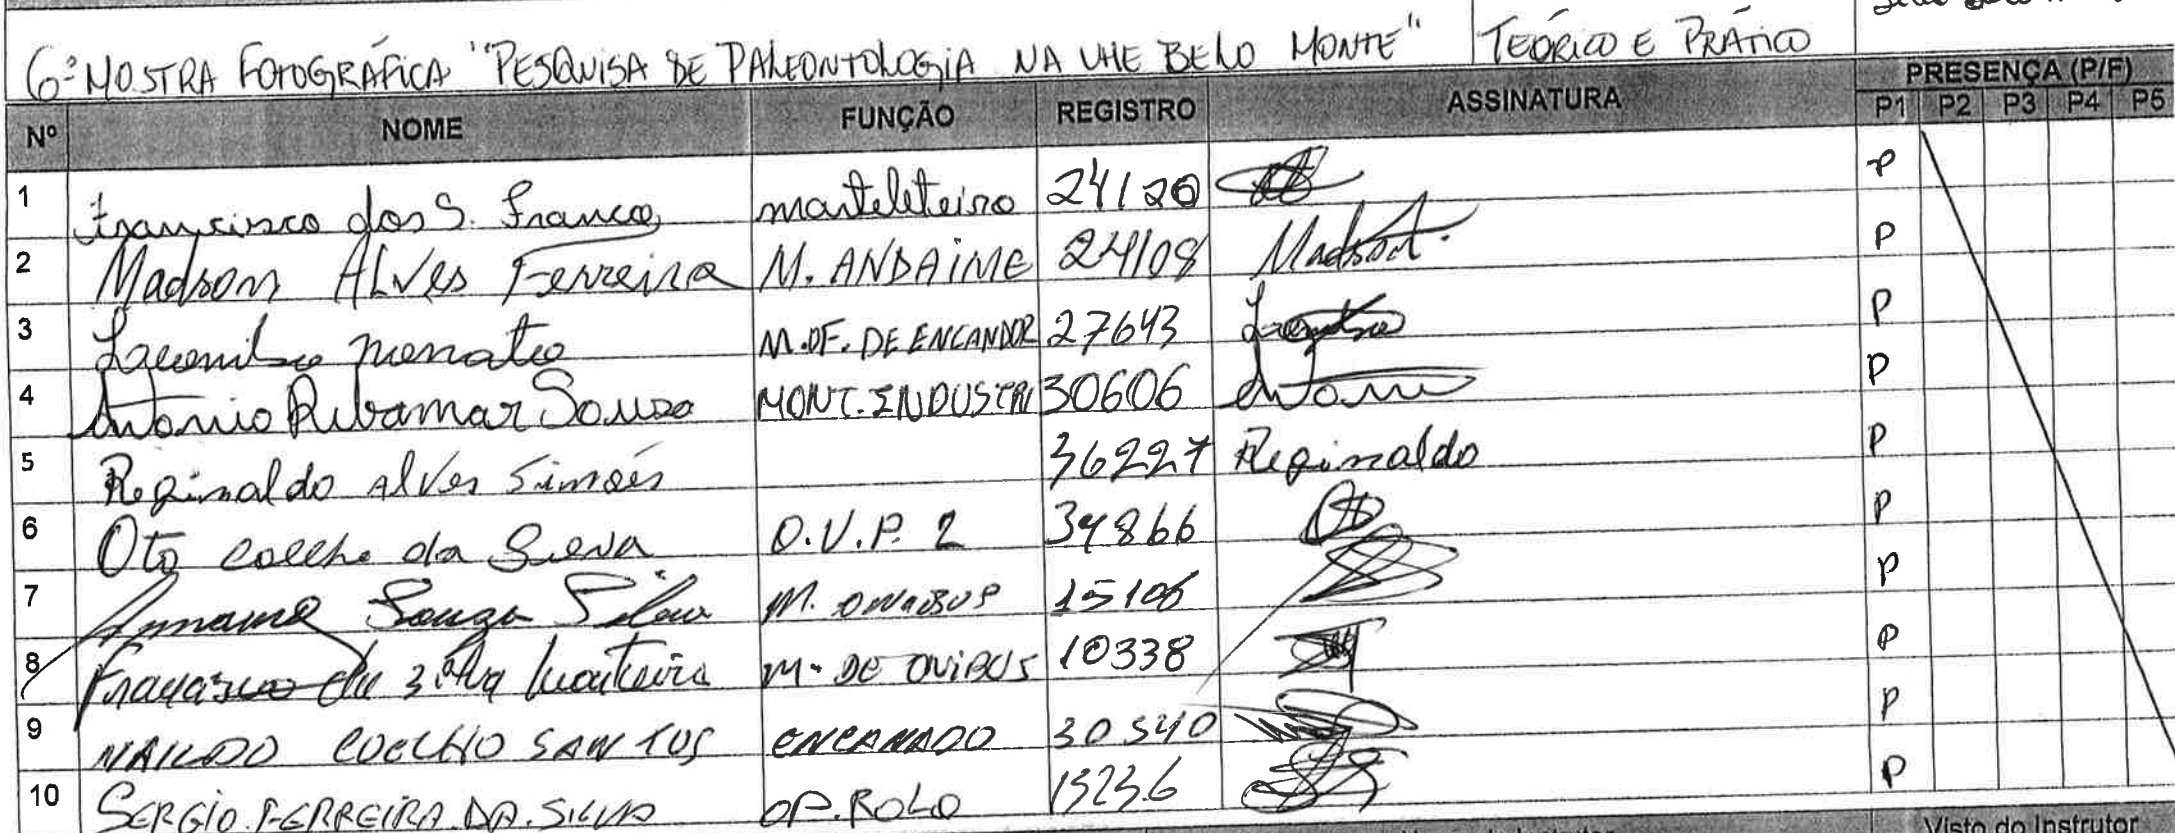 6ª MOSTRA FOTOGRÁFICA "PESQUISA DE PALEONTOLOGIA NA UHE BELO MONTE" TEÓRICO E PRÁTICO
Nº NOME FUNÇÃO REGISTRO ASSINATURA PRESENÇA (P/F)
P1 P2 P3 P4 P5
1 Francisco dos S. Franco marteleteiro 24120 P
2 Madson Alves Ferreira M. ANDAIME 24108 Madson P
3 M.OF. DE ENCANDOR 27643 P
4 Antonio Ribamar Souza MONT. INDUSTRI 30606 Antonio P
5 Reginaldo Alves Simões 36227 Reginaldo P
6 Oto Coelho da Silva O.V.P. 2 34866 P
7 Souza Silva M. ONIBUS 15106 P
8 Francisco da Silva Monteiro M. DE ONIBUS 10338 P
9 NAILDO COELHO SANTOS ENCANADO 30540 P
10 SERGIO FERREIRA DA SILVA OP. ROLO 15236 P
Visto do Instrutor